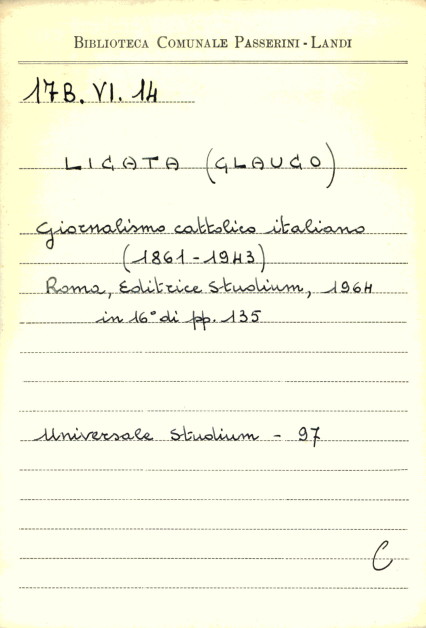 BIBLIOTECA COMUNALE PASSERINI - LANDI
17B. VI. 14
LICATA (GLAUCO)
Giornalismo cattolico italiano
(1861-1943)
Roma, Editrice Studium, 1964
in 16° di pp. 135
Universale Studium - 97
C